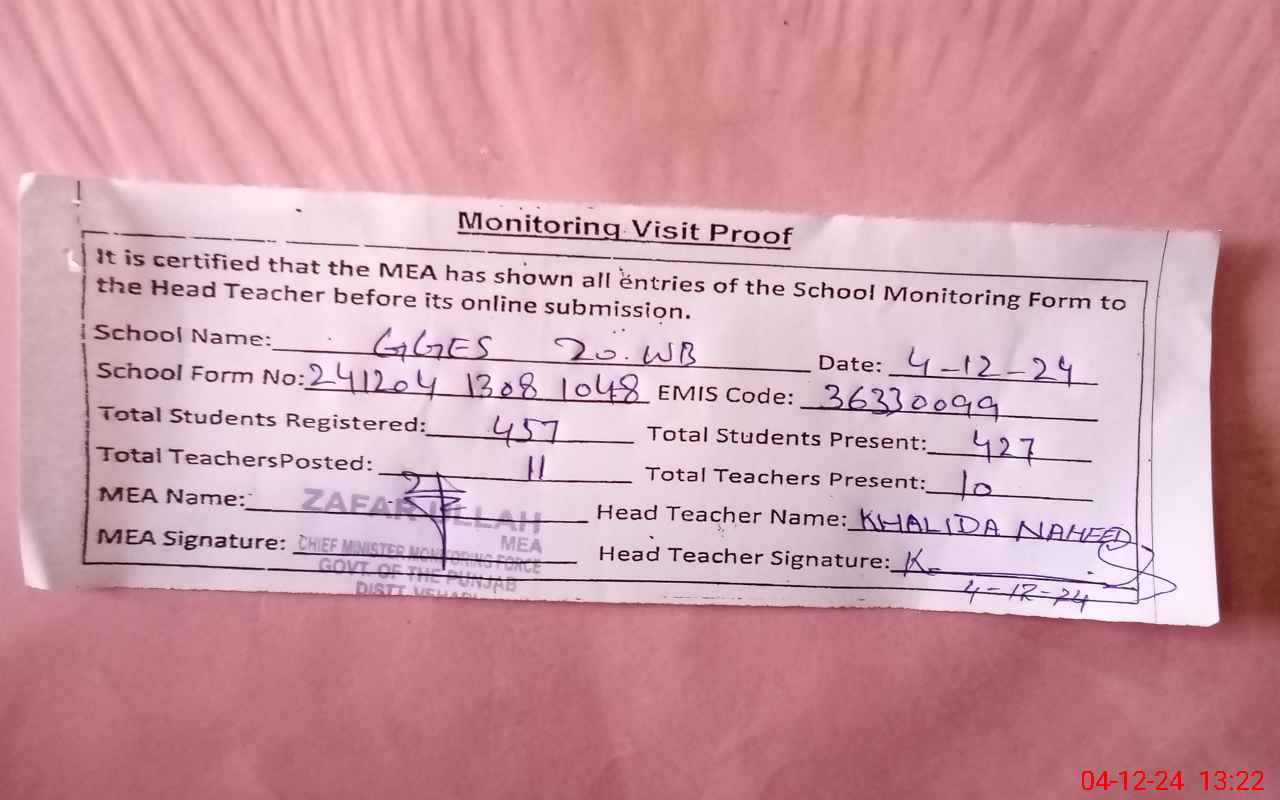 Monitoring Visit Proof
It is certified that the MEA has shown all entries of the School Monitoring Form to
the Head Teacher before its online submission.
School Name: GGES 20.WB Date: 4-12-24
School Form No: 241204 1308 1048 EMIS Code: 36330099
Total Students Registered: 457 Total Students Present: 427
Total TeachersPosted: 11 Total Teachers Present: 10
MEA Name: ZAFAR ULLAH Head Teacher Name: KHALIDA NAHEED
MEA
MEA Signature: CHIEF MINISTER MONITORING FORCE Head Teacher Signature: K.
GOVT OF THE PUNJAB
DISTT VEHARI
4-12-24
04-12-24 13:22